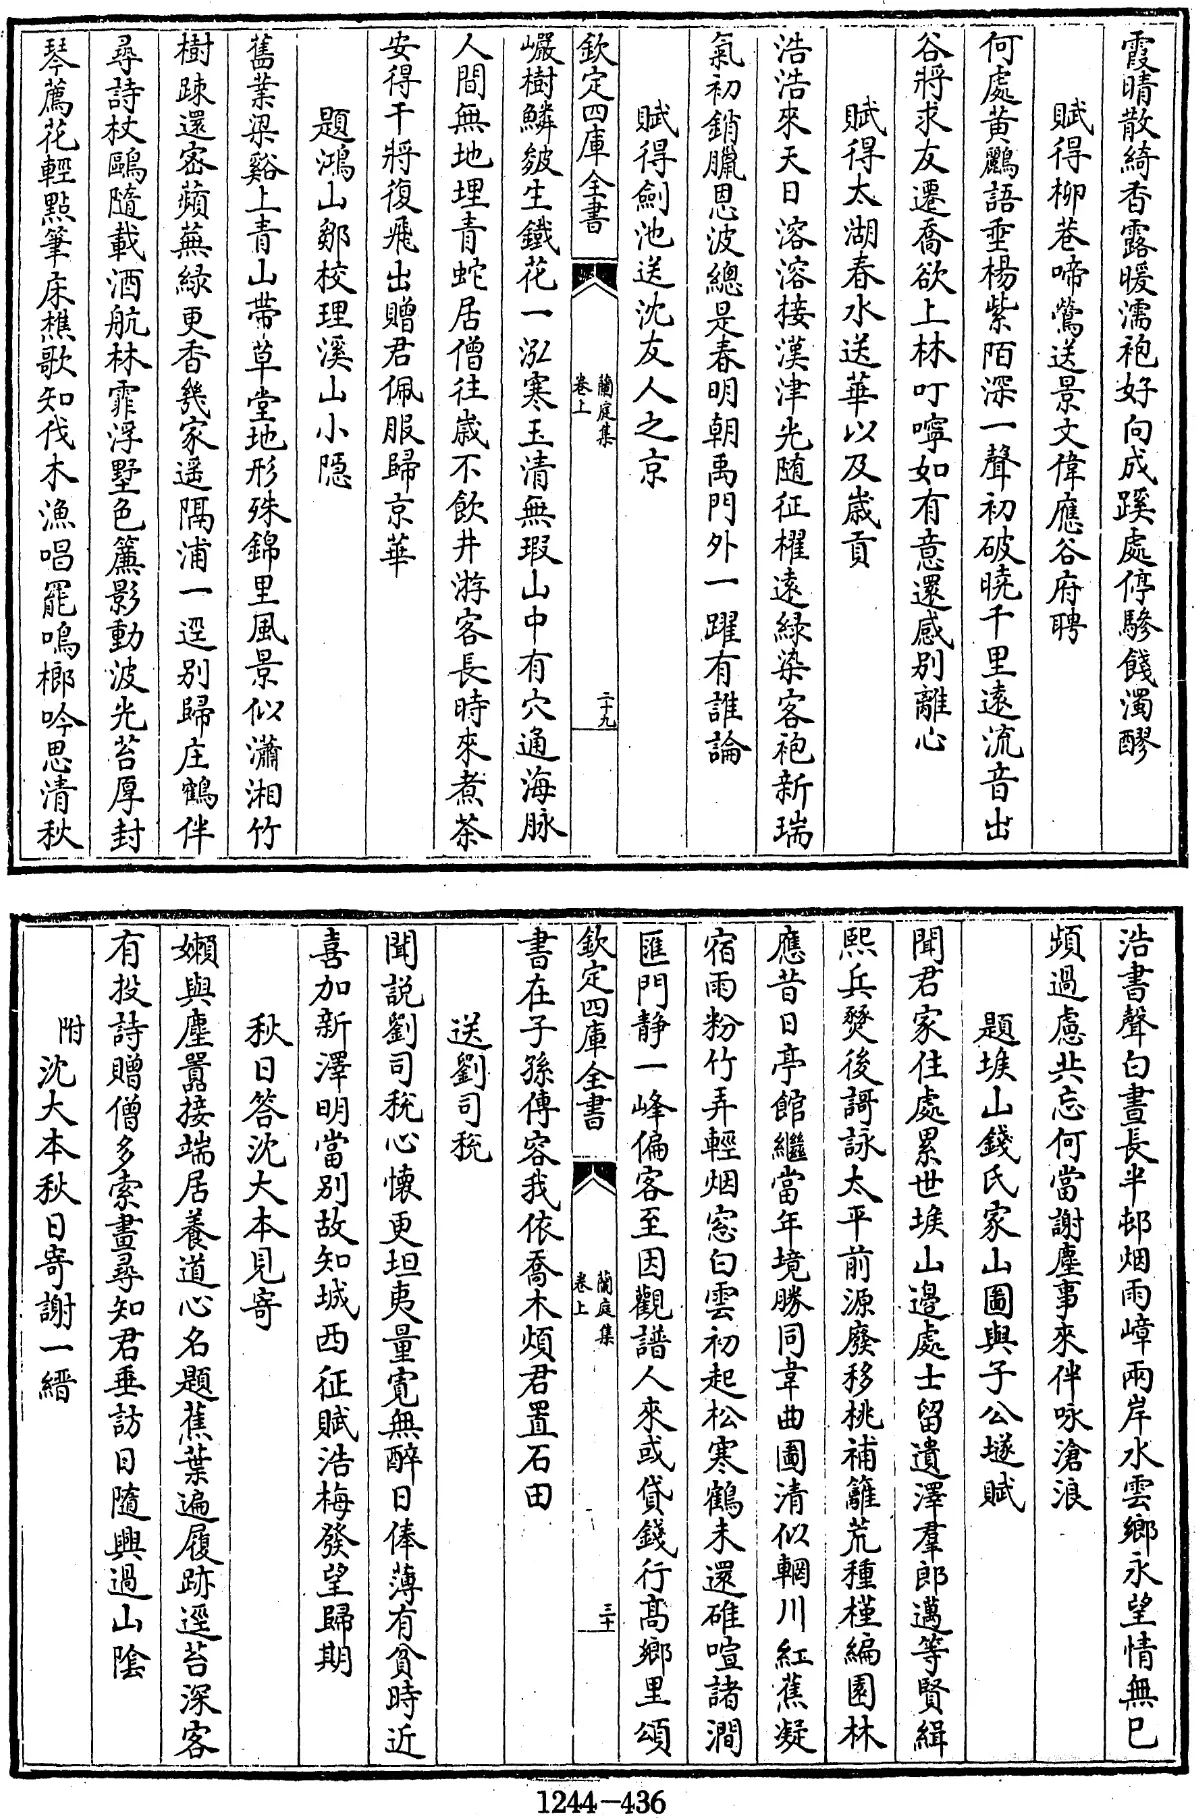 霞晴散綺香露暖濡袍好向成蹊處停驂餞濁醪
賦得柳巷啼鶯送景文偉應谷府聘
何處黄鸝語垂楊紫陌深一聲初破曉千里遠流音出
谷將求友遷喬欲上林叮嚀如有意還感别離心
賦得太湖春水送華以及歲貢
浩浩來天日溶溶接漢津光随征櫂遠緑染客袍新瑞
氣初銷臘恩波總是春明朝禹門外一躍有誰論
賦得劍池送沈友人之京
欽定四庫全書
蘭庭集
卷上
二十九
巗樹鱗皴生鐵花一泓寒玉清無瑕山中有穴通海脉
人間無地埋青蛇居僧往歲不飲井游客長時來煮茶
安得干將復飛出贈君佩服歸京華
題鴻山鄒校理溪山小隠
舊業梁谿上青山帶草堂地形殊錦里風景似瀟湘竹
樹疎還宻蘋蕪緑更香幾家遥隔浦一逕别歸庄鶴伴
尋詩杖鷗隨載酒航林霏浮墅色簾影動波光苔厚封
琴薦花輕點筆床樵歌知伐木漁唱罷鳴榔吟思清秋
浩書聲白晝長半邨烟雨嶂兩岸水雲鄉永望情無已
頻過慮共忘何當謝塵事來伴咏滄浪
題堠山錢氏家山圖與子公㙜賦
聞君家住處累世堠山邉處士留遺澤羣郎邁等賢緝
熙兵燹後謌詠太平前源廢移桃補籬荒種槿編園林
應昔日亭館繼當年境勝同韋曲圖清似輞川紅蕉凝
宿雨粉竹弄輕烟窓白雲初起松寒鶴未還碓喧諸澗
匯門静一峰偏客至因觀譜人來或貸錢行髙鄉里頌
欽定四庫全書
蘭庭集
卷上
三十
書在子孫傳容我依喬木煩君置石田
送劉司税
聞説劉司税心懷更坦夷量寛無醉日俸薄有貧時近
喜加新澤明當别故知城西征賦浩梅發望歸期
秋日答沈大本見寄
嬾與塵囂接端居養道心名題蕉葉遍履跡逕苔深客
有投詩贈僧多索畫尋知君垂訪日隨興過山陰
附沈大本秋日寄謝一縉
1244-436